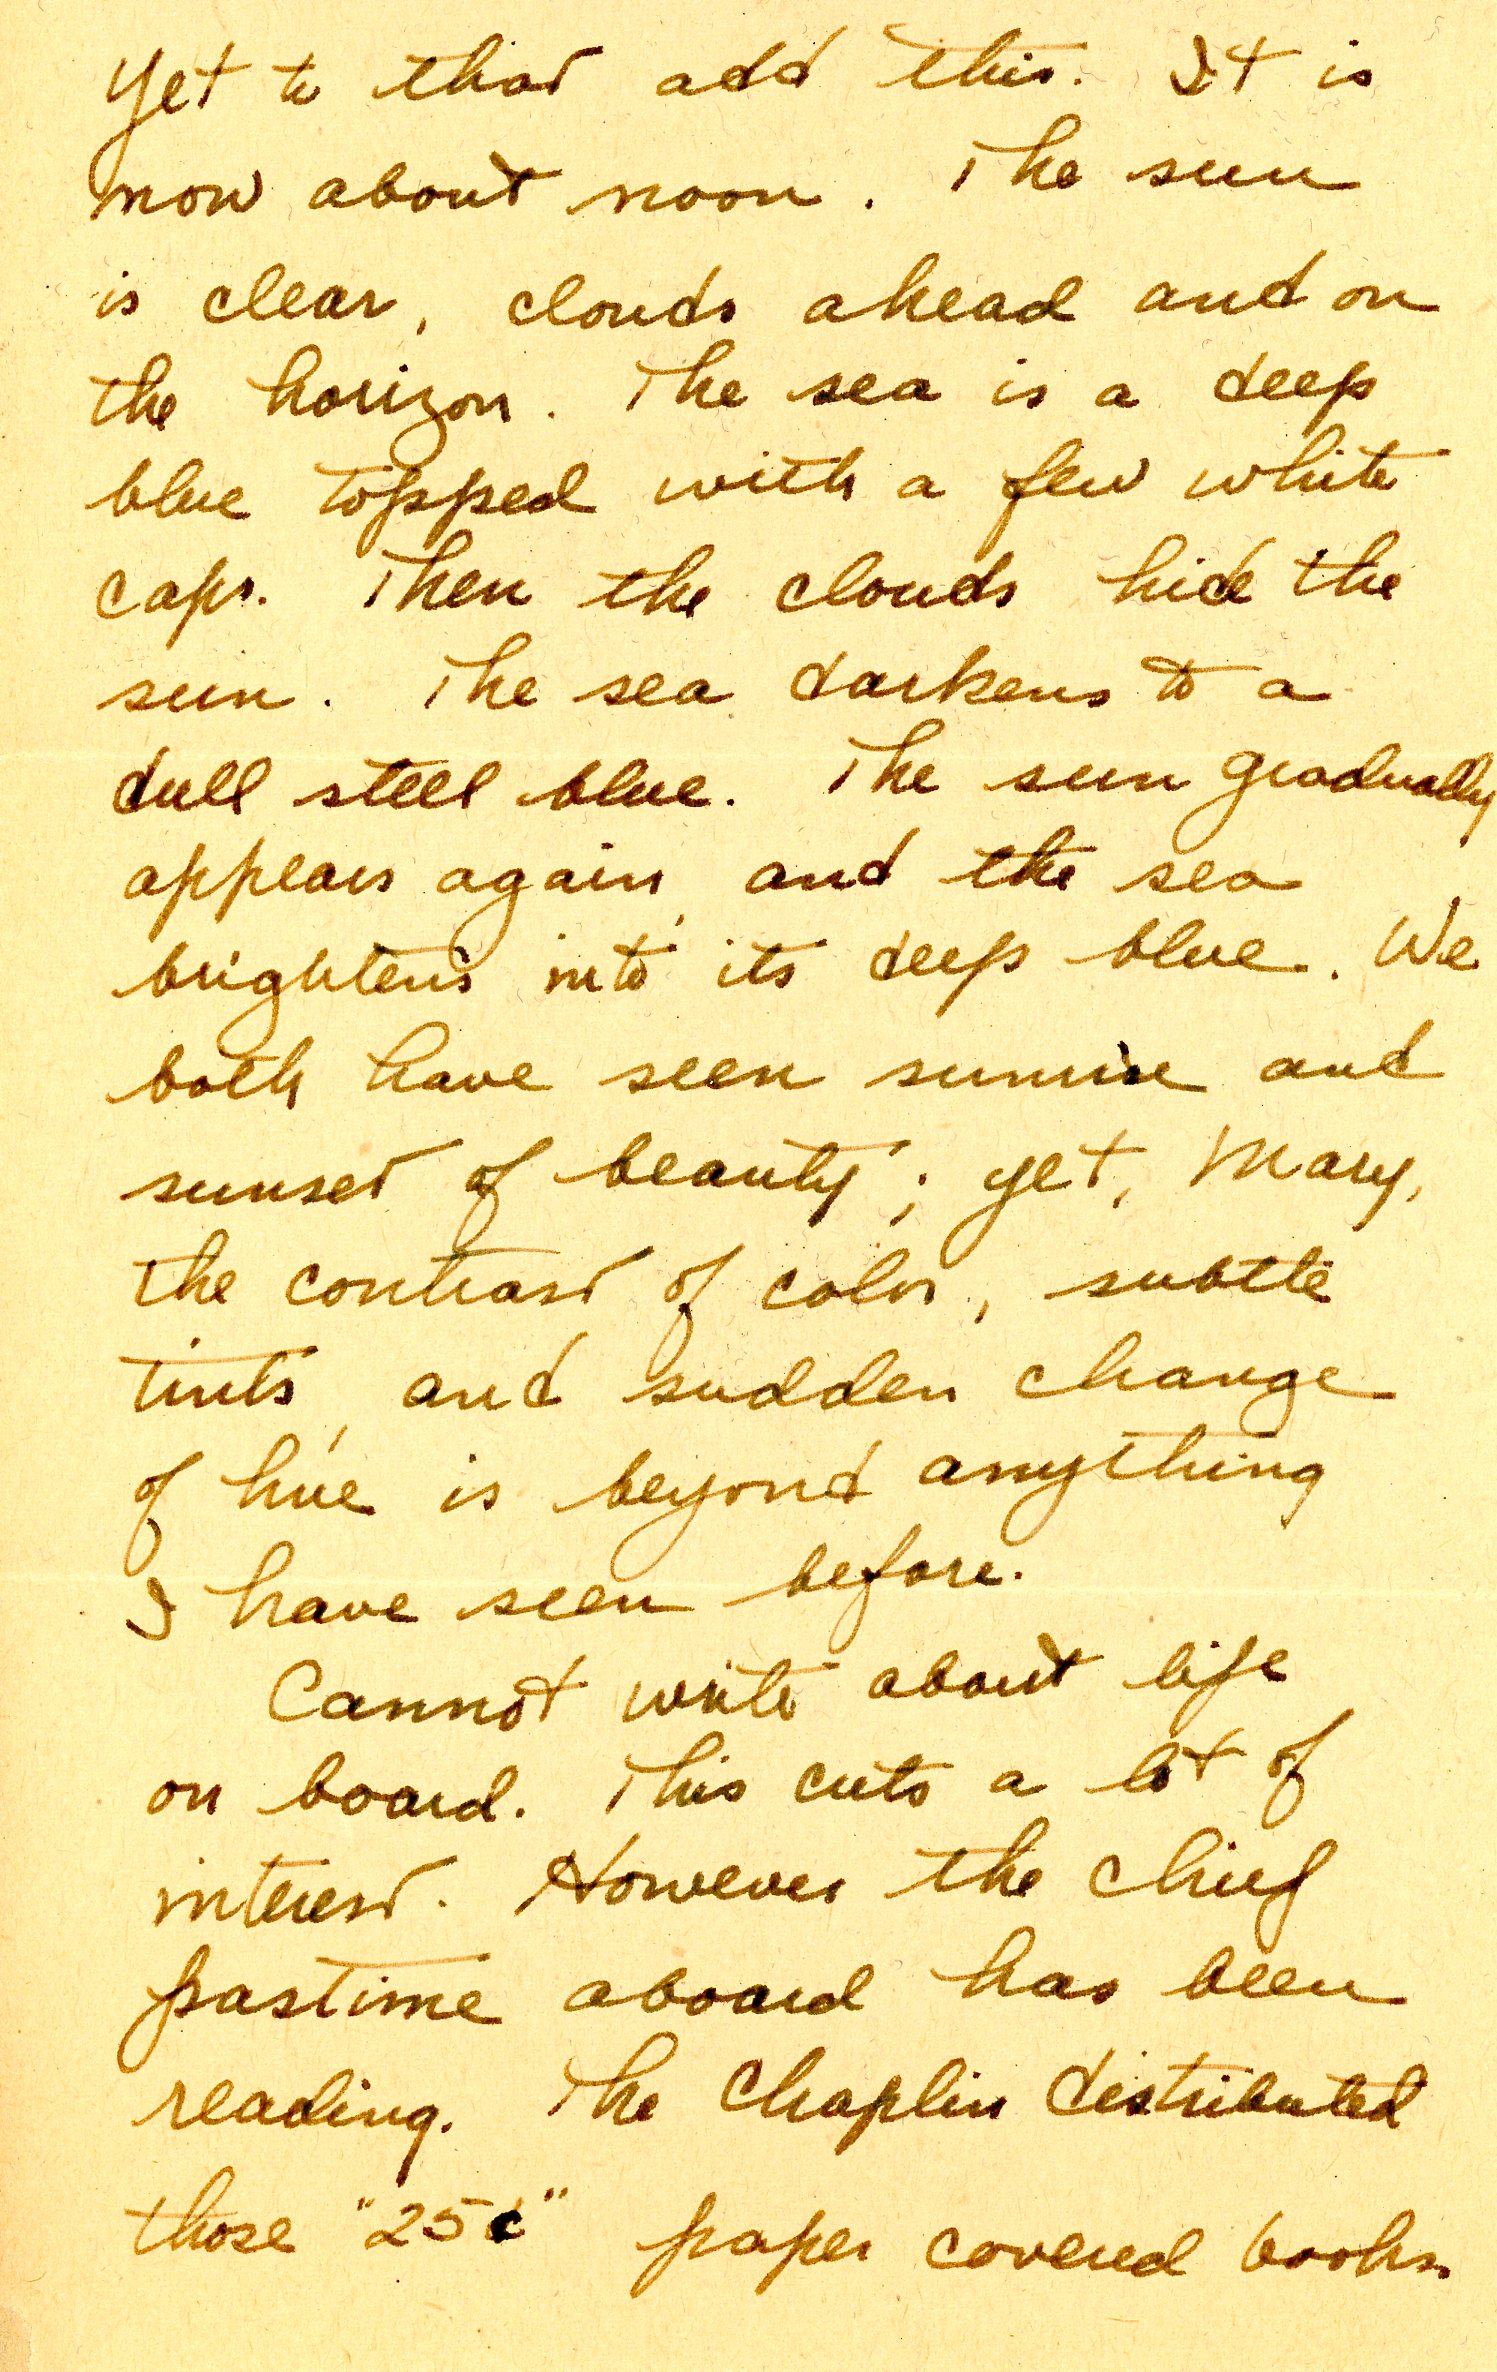 Yet to that add this. It is
now about noon. The sun
is clear, clouds ahead and on
the horizon. The sea is a deep
blue topped with a few white
caps. Then the clouds hide the
sun. The sea darkens to a
dull steel blue. The sun gradually
appears again, and the sea
brightens into its deep blue. We
both have seen sunrise and
sunset of beauty; yet, Mary,
the contrast of color, subtle
tints, and sudden change
of hue is beyond anything
I have seen before.
Cannot write about life
on board. This cuts a lot of
interest. However the chief
pastime aboard has been
reading. The Chaplin distributed
those "25¢" paper covered books.